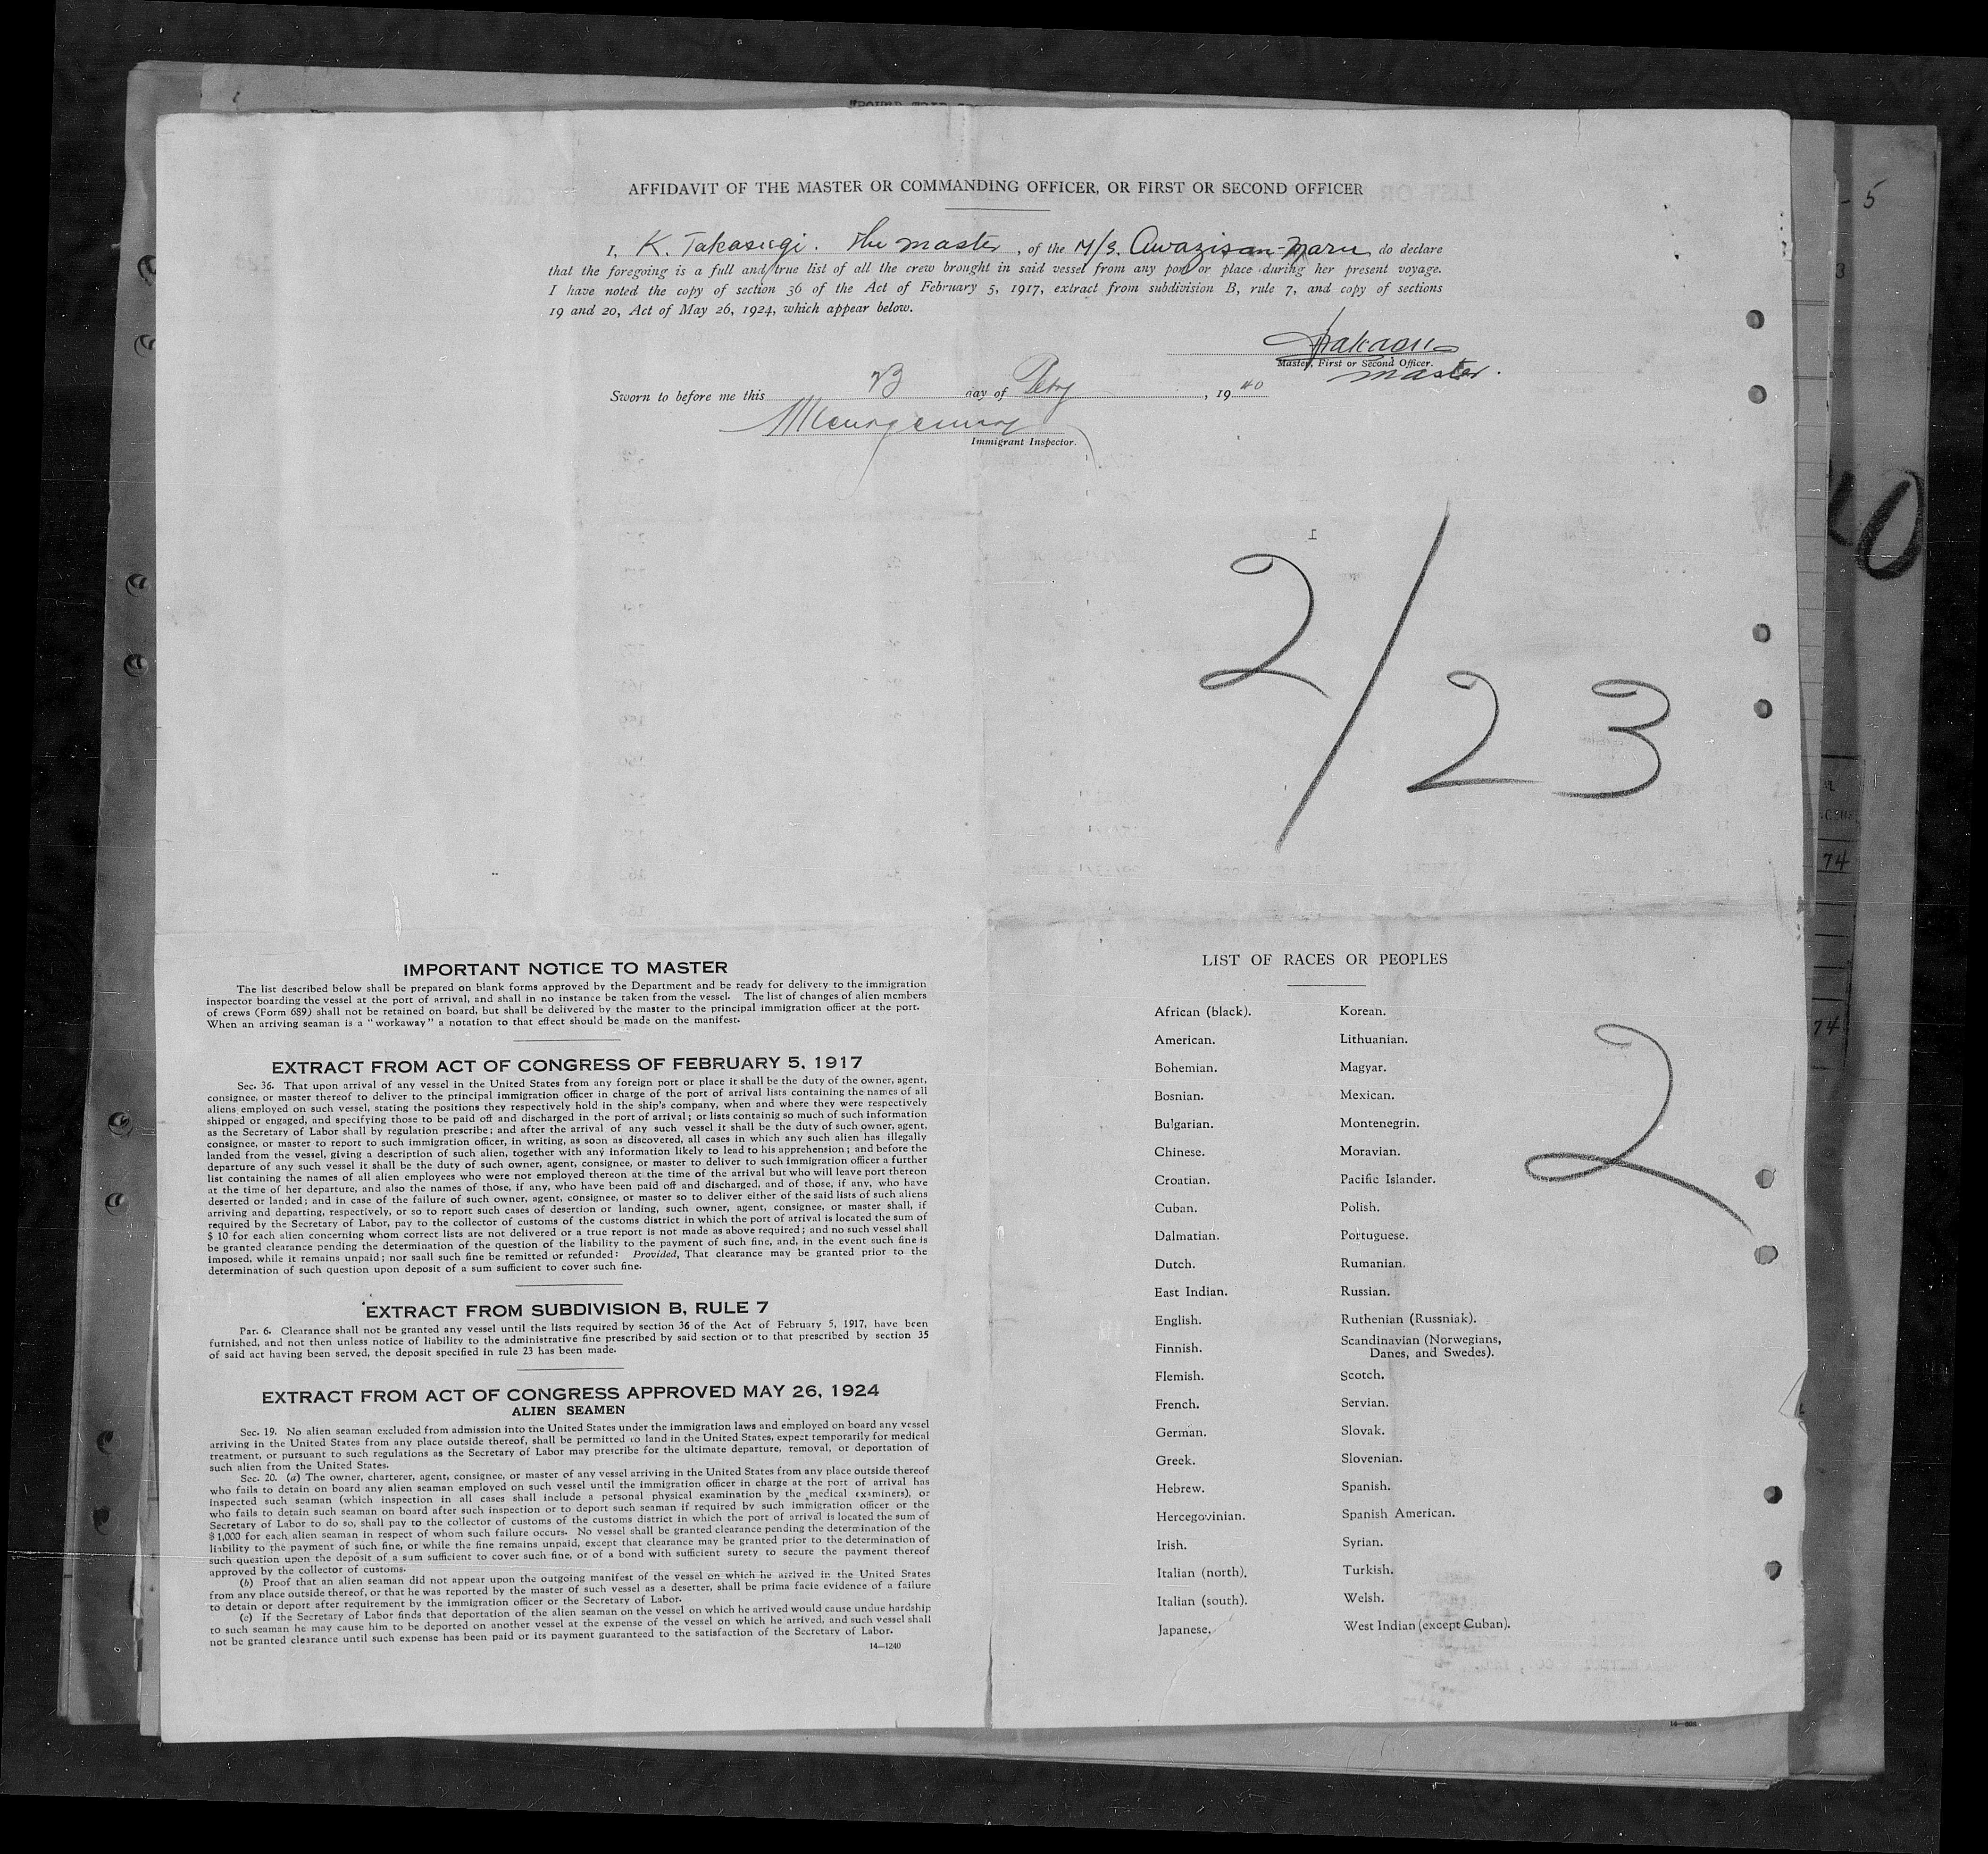 AFFIDAVIT OF THE MASTER OR COMMANDING OFFICER, OR FIRST OR SECOND OFFICER
I, K. Takasugi. The master, of the M/S. Awazisan-Maru do declare
that the foregoing is a full and true list of all the crew brought in said vessel from any port or place during her present voyage.
I have noted the copy of section 36 of the Act of February 5, 1917, extract from subdivision B, rule 7, and copy of sections
19 and 20, Act of May 26, 1924, which appear below.
Master, First or Second Officer.
master.
Sworn to before me this 23 day of Feby, 1940
Immigrant Inspector.
2/23
IMPORTANT NOTICE TO MASTER
The list described below shall be prepared on blank forms approved by the Department and be ready for delivery to the immigration
inspector boarding the vessel at the port of arrival, and shall in no instance be taken from the vessel. The list of changes of alien members
of crews (Form 689) shall not be retained on board, but shall be delivered by the master to the principal immigration officer at the port.
When an arriving seaman is a "workaway" a notation to that effect should be made on the manifest.
EXTRACT FROM ACT OF CONGRESS OF FEBRUARY 5, 1917
Sec. 36. That upon arrival of any vessel in the United States from any foreign port or place it shall be the duty of the owner, agent,
consignee, or master thereof to deliver to the principal immigration officer in charge of the port of arrival lists containing the names of all
aliens employed on such vessel, stating the positions they respectively hold in the ship's company, when and where they were respectively
shipped or engaged, and specifying those to be paid off and discharged in the port of arrival; or lists containig so much of such information
as the Secretary of Labor shall by regulation prescribe; and after the arrival of any such vessel it shall be the duty of such owner, agent,
consignee, or master to report to such immigration officer, in writing, as soon as discovered, all cases in which any such alien has illegally
landed from the vessel, giving a description of such alien, together with any information likely to lead to his apprehension; and before the
departure of any such vessel it shall be the duty of such owner, agent, consignee, or master to deliver to such immigration officer a further
list containing the names of all alien employees who were not employed thereon at the time of the arrival but who will leave port thereon
at the time of her departure, and also the names of those, if any, who have been paid off and discharged, and of those, if any, who have
deserted or landed; and in case of the failure of such owner, agent, consignee, or master so to deliver either of the said lists of such aliens
arriving and departing, respectively, or so to report such cases of desertion or landing, such owner, agent, consignee, or master shall, if
required by the Secretary of Labor, pay to the collector of customs of the customs district in which the port of arrival is located the sum of
$ 10 for each alien concerning whom correct lists are not delivered or a true report is not made as above required; and no such vessel shall
be granted clearance pending the determination of the question of the liability to the payment of such fine, and, in the event such fine is
imposed, while it remains unpaid; nor saall such fine be remitted or refunded: Provided, That clearance may be granted prior to the
determination of such question upon deposit of a sum sufficient to cover such fine.
EXTRACT FROM SUBDIVISION B, RULE 7
Par. 6. Clearance shall not be granted any vessel until the lists required by section 36 of the Act of February 5, 1917, have been
furnished, and not then unless notice of liability to the administrative fine prescribed by said section or to that prescribed by section 35
of said act having been served, the deposit specified in rule 23 has been made.
EXTRACT FROM ACT OF CONGRESS APPROVED MAY 26, 1924
ALIEN SEAMEN
Sec. 19. No alien seaman excluded from admission into the United States under the immigration laws and employed on board any vessel
arriving in the United States from any place outside thereof, shall be permitted to land in the United States, expect temporarily for medical
treatment, or pursuant to such regulations as the Secretary of Labor may prescribe for the ultimate departure, removal, or deportation of
such alien from the United States.
Sec. 20. (a) The owner, charterer, agent, consignee, or master of any vessel arriving in the United States from any place outside thereof
who fails to detain on board any alien seaman employed on such vessel until the immigration officer in charge at the port of arrival has
inspected such seaman (which inspection in all cases shall include a personal physical examination by the medical examiners), or
who fails to detain such seaman on board after such inspection or to deport such seaman if required by such immigration officer or the
Secretary of Labor to do so, shall pay to the collector of customs of the customs district in which the port of arrival is located the sum of
$ 1,000 for each alien seaman in respect of whom such failure occurs. No vessel shall be granted clearance pending the determination of the
liability to the payment of such fine, or while the fine remains unpaid, except that clearance may be granted prior to the determination of
such question upon the deposit of a sum sufficient to cover such fine, or of a bond with sufficient surety to secure the payment thereof
approved by the collector of customs.
(b) Proof that an alien seaman did not appear upon the outgoing manifest of the vessel on which he arrived in the United States
from any place outside thereof, or that he was reported by the master of such vessel as a deserter, shall be prima facie evidence of a failure
to detain or deport after requirement by the immigration officer or the Secretary of Labor.
(c) If the Secretary of Labor finds that deportation of the alien seaman on the vessel on which he arrived would cause undue hardship
to such seaman he may cause him to be deported on another vessel at the expense of the vessel on which he arrived, and such vessel shall
not be granted clearance until such expense has been paid or its payment guaranteed to the satisfaction of the Secretary of Labor.
14—1240
LIST OF RACES OR PEOPLES
African (black).
American.
Bohemian.
Bosnian.
Bulgarian.
Chinese.
Croatian.
Cuban.
Dalmatian.
Dutch.
East Indian.
English.
Finnish.
Flemish.
French.
German.
Greek.
Hebrew.
Hercegovinian.
Irish.
Italian (north).
Italian (south).
Japanese.
Korean.
Lithuanian.
Magyar.
Mexican.
Montenegrin.
Moravian.
Pacific Islander.
Polish.
Portuguese.
Rumanian.
Russian.
Ruthenian (Russniak).
Scandinavian (Norwegians,
Danes, and Swedes).
Scotch.
Servian.
Slovak.
Slovenian.
Spanish.
Spanish American.
Syrian.
Turkish.
Welsh.
West Indian (except Cuban).
2
5
74
74